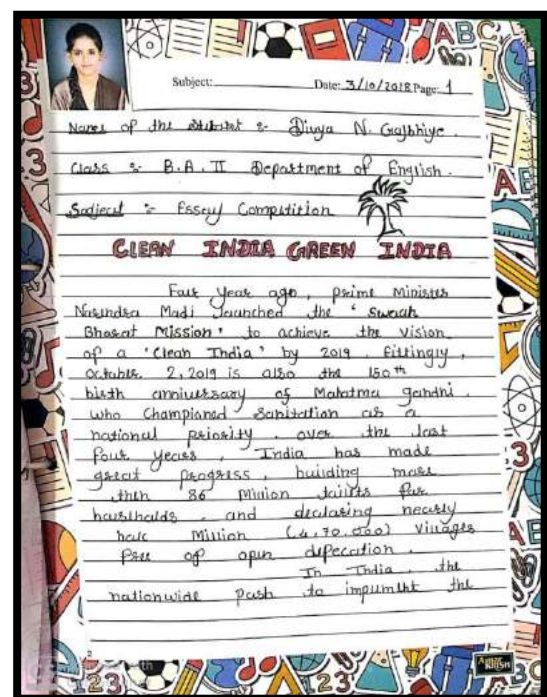 Subject: Date: 3/10/2018 Page: 1
Names of the student :- Divya N. Gajbhiye.
Class :- B.A. II Department of English.
Sadject :- Essay Compitition
CLEAN INDIA GREEN INDIA
Four year ago, prime Minister
Narendra Madi launched the 'Swach
Bharat Mission' to achieve the vision
of a 'Clean India' by 2019. fittingly,
october 2, 2019 is also the 150th
birth anniversary of Mahatma gandhi.
who Championed Sanitation as a
national priority. over the last
four years, India has made
great progress, building more
then 86 Million toilets for
households, and declaring nearly
half Million (4,70,000) villages
free of open defecation.
In India, the
nationwide push to impliment the